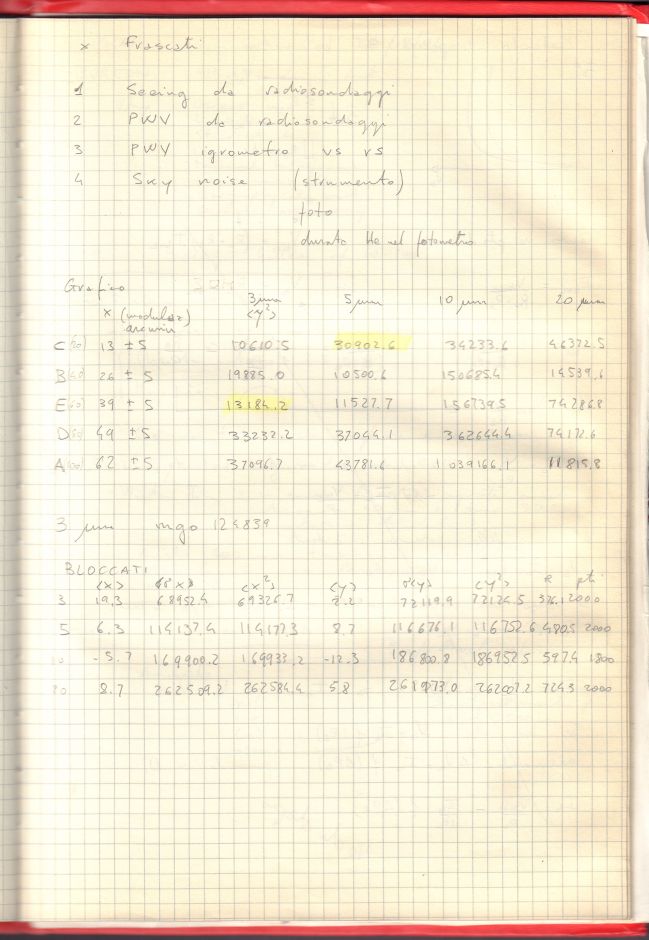 x Frascati
1 Seeing da radiosondaggi
2 PWV da radiosondaggi
3 PWV igrometro vs rs
4 Sky noise (strumento)
foto
durata He nel fotometro
Grafico
x (modulaz) 3 μm 5 μm 10 μm 20 μm
arcmin <y²>
C(20) 13 ± 5 10610.5 30902.6 34233.6 46372.5
B(40) 26 ± 5 19885.0 10500.6 150685.4 14539.6
E(60) 39 ± 5 13184.2 11527.7 156739.5 74286.8
D(80) 49 ± 5 33232.2 37044.1 362644.4 74172.6
A(100) 62 ± 5 37096.7 43781.6 1039166.1 11815.8
3 μm mgo 124839
BLOCCATI
<x> <x²> <y> <y²> R pti
3 19.3 68952.4 69326.7 2.2 72119.9 72124.5 376.1 2000
5 6.3 114137.4 114177.3 8.7 116676.1 116752.6 480.5 2000
10 -5.7 169900.2 169933.2 -12.3 186800.8 186952.5 597.4 1800
20 8.7 262509.2 262584.4 5.8 261973.0 262007.2 724.3 2000